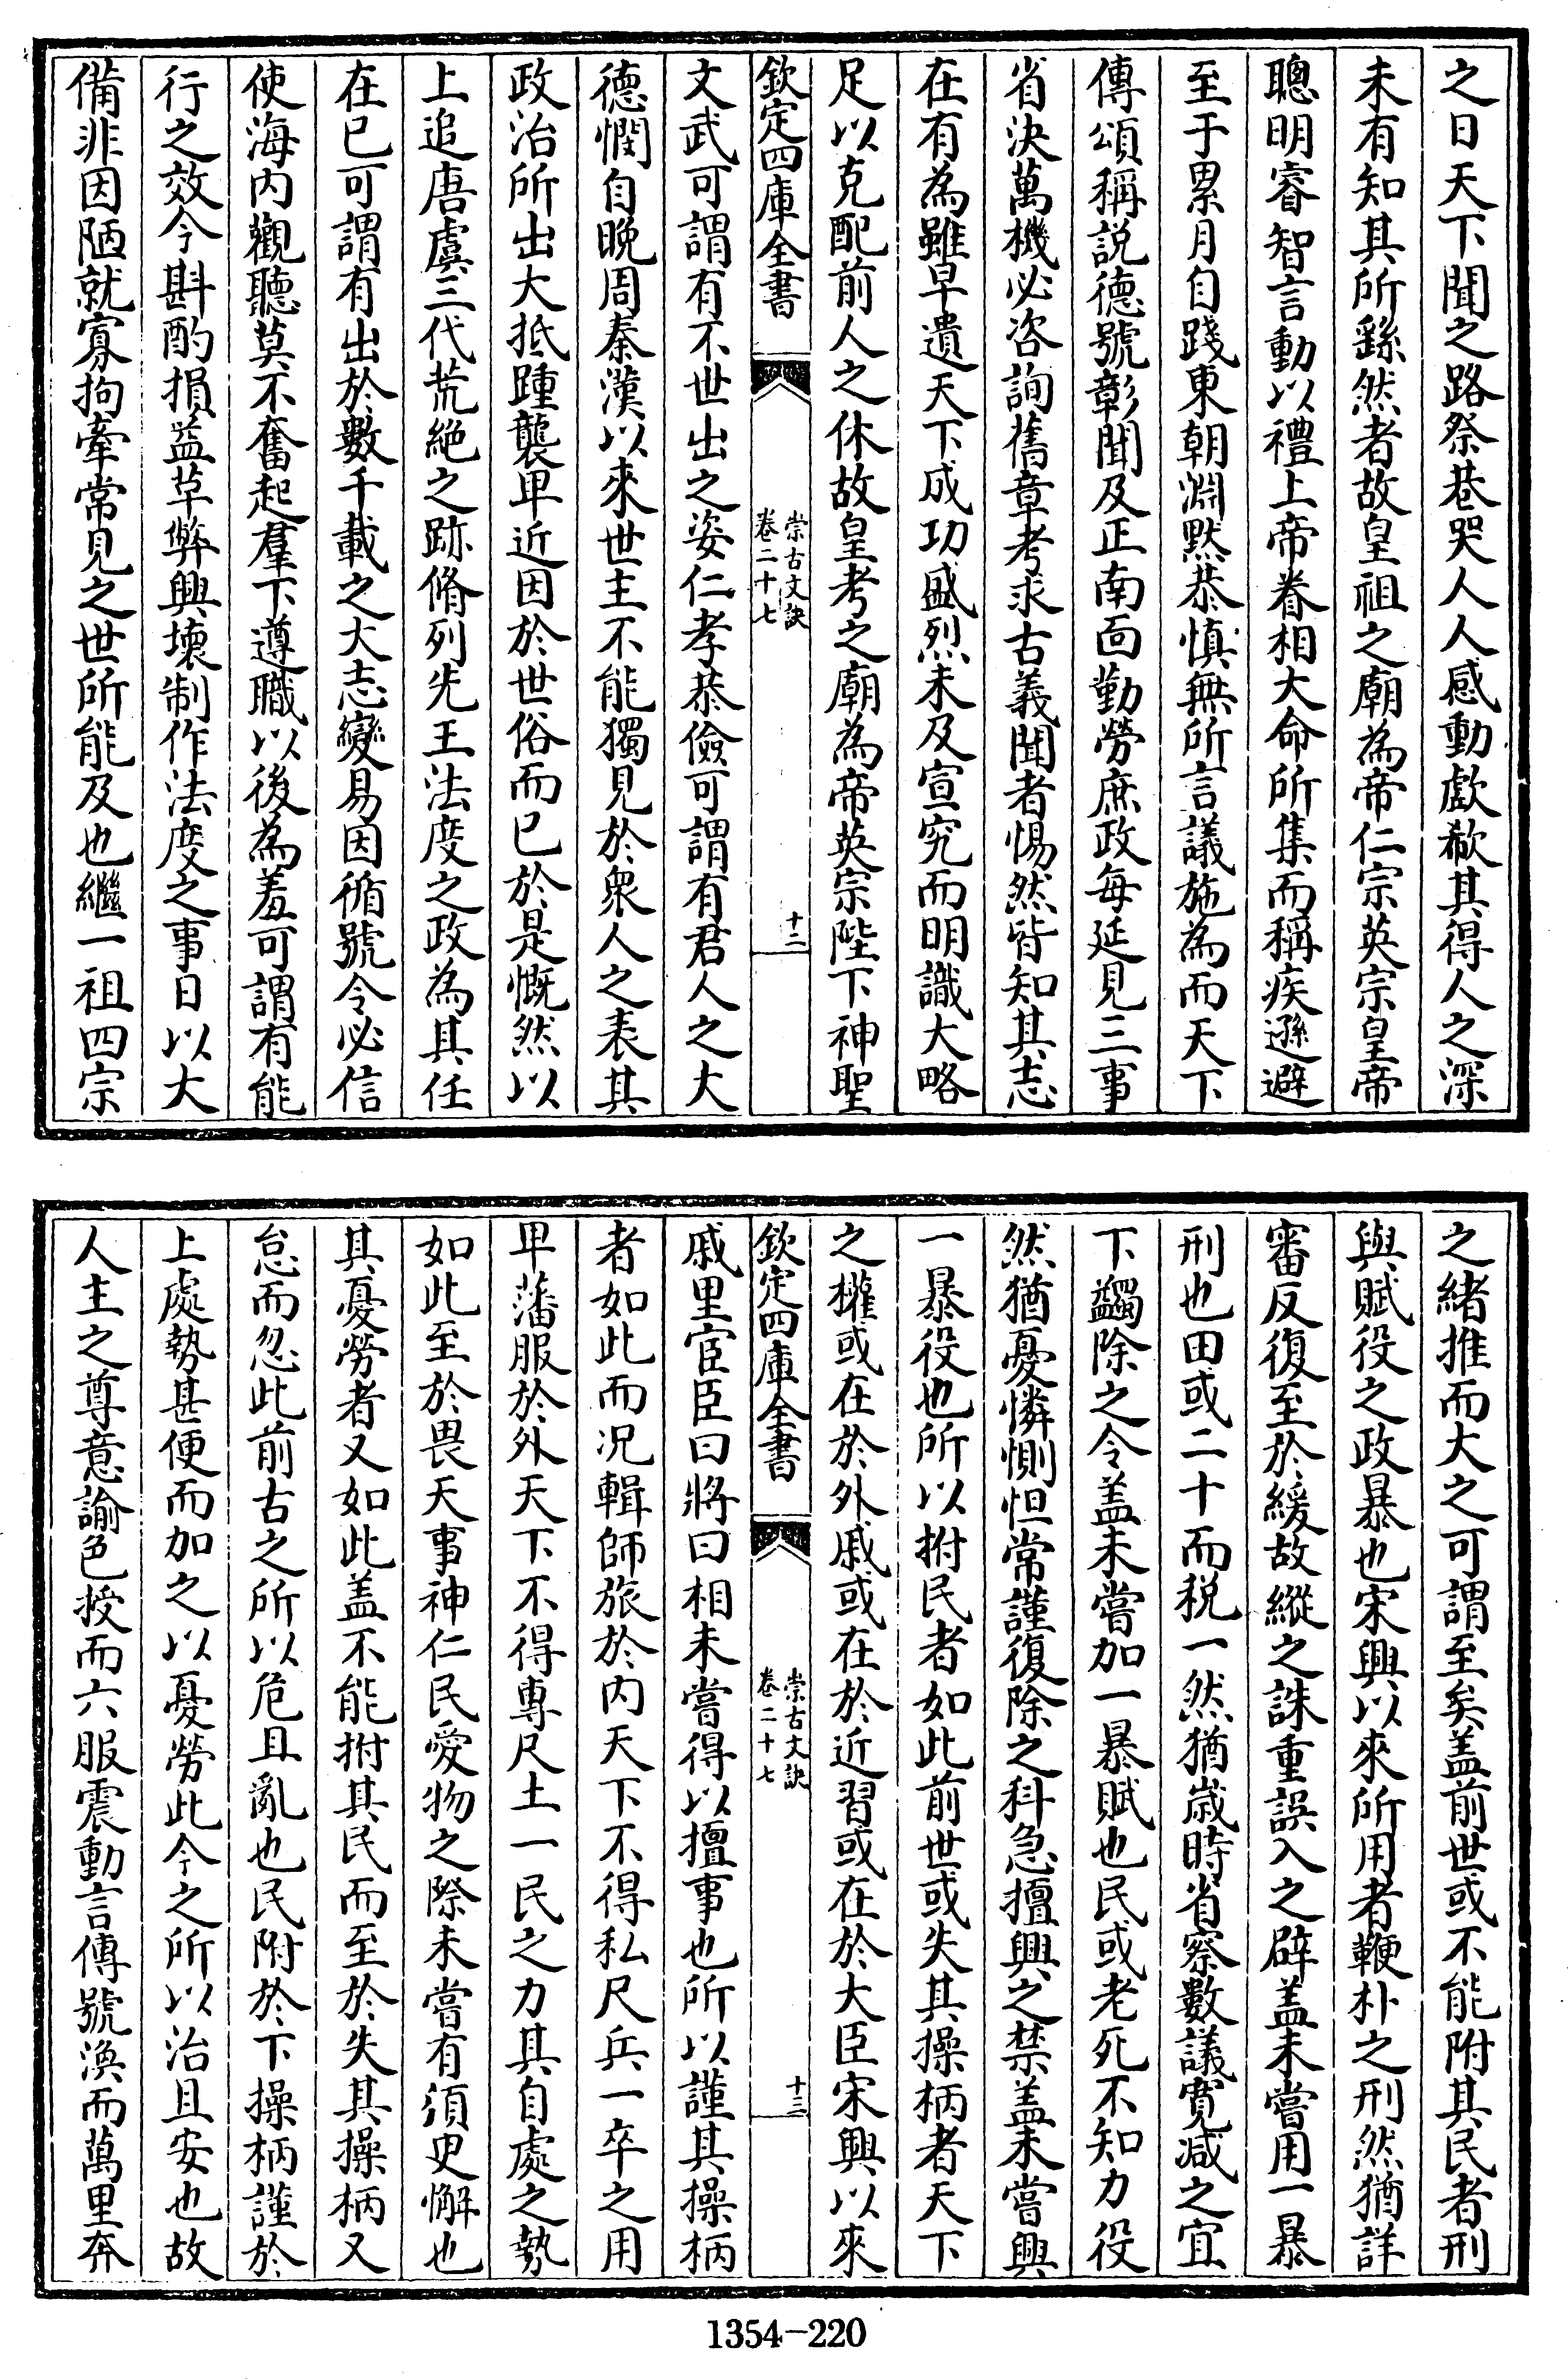 之日天下聞之路祭巷哭人人感動歔欷其得人之深
未有知其所繇然者故皇祖之廟為帝仁宗英宗皇帝
聰明睿智言動以禮上帝眷相大命所集而稱疾遜避
至于累月自踐東朝淵黙恭慎無所言議施為而天下
傳頌稱説德號彰聞及正南面勤勞庶政每延見三事
省決萬機必咨詢舊章考求古義聞者惕然皆知其志
在有為雖早遺天下成功盛烈未及宣究而明識大略
足以克配前人之休故皇考之廟為帝英宗陛下神聖
欽定四庫全書
崇古文訣
卷二十七
十二
文武可謂有不世出之姿仁孝恭儉可謂有君人之大
德憫自晚周秦漢以來世主不能獨見於衆人之表其
政治所出大抵踵襲卑近因於世俗而已於是慨然以
上追唐虞三代荒絶之跡脩列先王法度之政為其任
在已可謂有出於數千載之大志變易因循號令必信
使海内觀聽莫不奮起羣下遵職以後為羞可謂有能
行之效今斟酌損益草弊興壞制作法度之事日以大
備非因陋就寡拘牽常見之世所能及也繼一祖四宗
之緒推而大之可謂至矣盖前世或不能附其民者刑
與賦役之政暴也宋興以來所用者鞭朴之刑然猶詳
審反復至於緩故縱之誅重誤入之辟盖未嘗用一暴
刑也田或二十而税一然猶歳時省察數議寛减之宜
下蠲除之令盖未嘗加一暴賦也民或老死不知力役
然猶憂憐惻怛常謹復除之科急擅興之禁盖未嘗興
一暴役也所以拊民者如此前世或失其操柄者天下
之權或在於外戚或在於近習或在於大臣宋興以來
欽定四庫全書
崇古文訣
卷二十七
十三
戚里宦臣曰將曰相未嘗得以擅事也所以謹其操柄
者如此而况輯師旅於内天下不得私尺兵一卒之用
卑藩服於外天下不得專尺土一民之力其自處之勢
如此至於畏天事神仁民愛物之際未嘗有須㬰懈也
其憂勞者又如此盖不能拊其民而至於失其操柄又
怠而忽此前古之所以危且亂也民附於下操柄謹於
上處勢甚便而加之以憂勞此今之所以治且安也故
人主之尊意諭色授而六服震動言傳號渙而萬里奔
1354-220